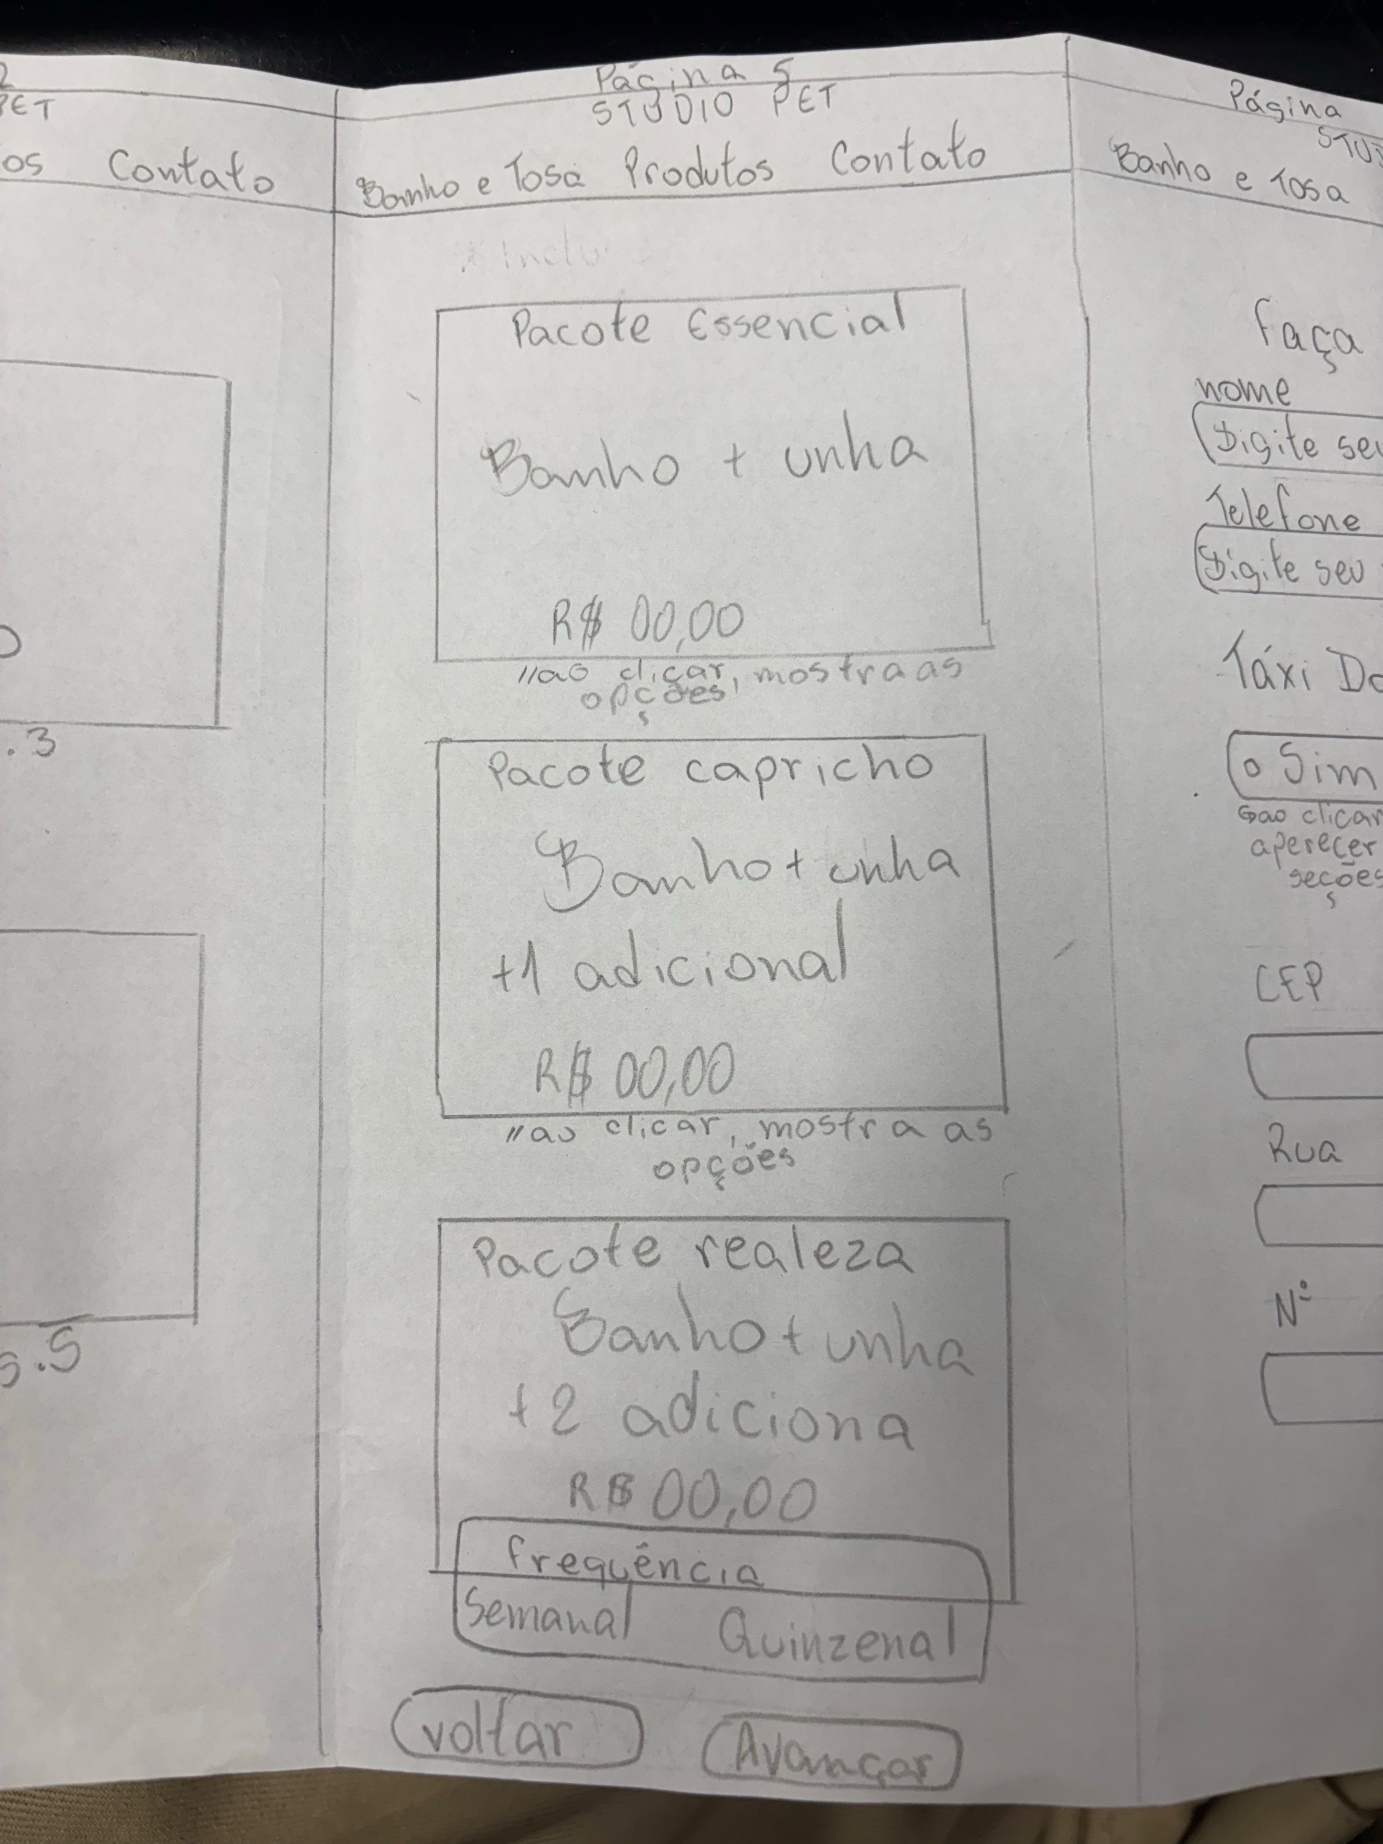 2
PET
os Contato
. 3
5.5
Página 5
STUDIO PET
Banho e Tosa Produtos Contato
* Inclu
Pacote Essencial
Banho + unha
R$ 00,00
"ao clicar, mostra as
opções
Pacote capricho
Banho + unha
+1 adicional
R$ 00,00
"ao clicar, mostra as
opções
Pacote realeza
Banho + unha
+2 adiciona
R$ 00,00
frequência
Semanal Quinzenal
voltar Avançar
Página
STU
Banho e Tosa
faça
nome
Digite seu
Telefone
Digite seu
Táxi Do
o Sim
ao clicar
aperecer
seções
CEP
Rua
Nº